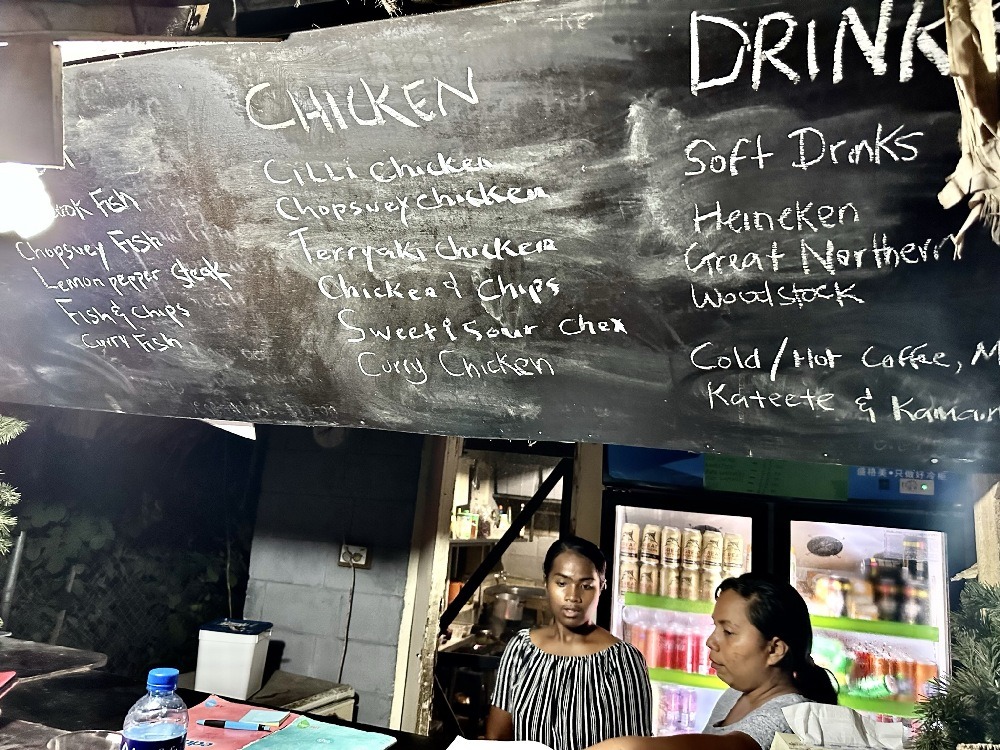 Fish
Chopsuey Fish
Lemon pepper steak
Fish & chips
Curry Fish
CHICKEN
CiLLi chicken
Chopsuey chicken
Terryaki chicken
Chicken & Chips
Sweet & Sour Chex
Curry Chicken
DRINK
Soft Drinks
Heineken
Great Northern
Woodstock
Cold/Hot Coffee, M
Kateete & Kamai